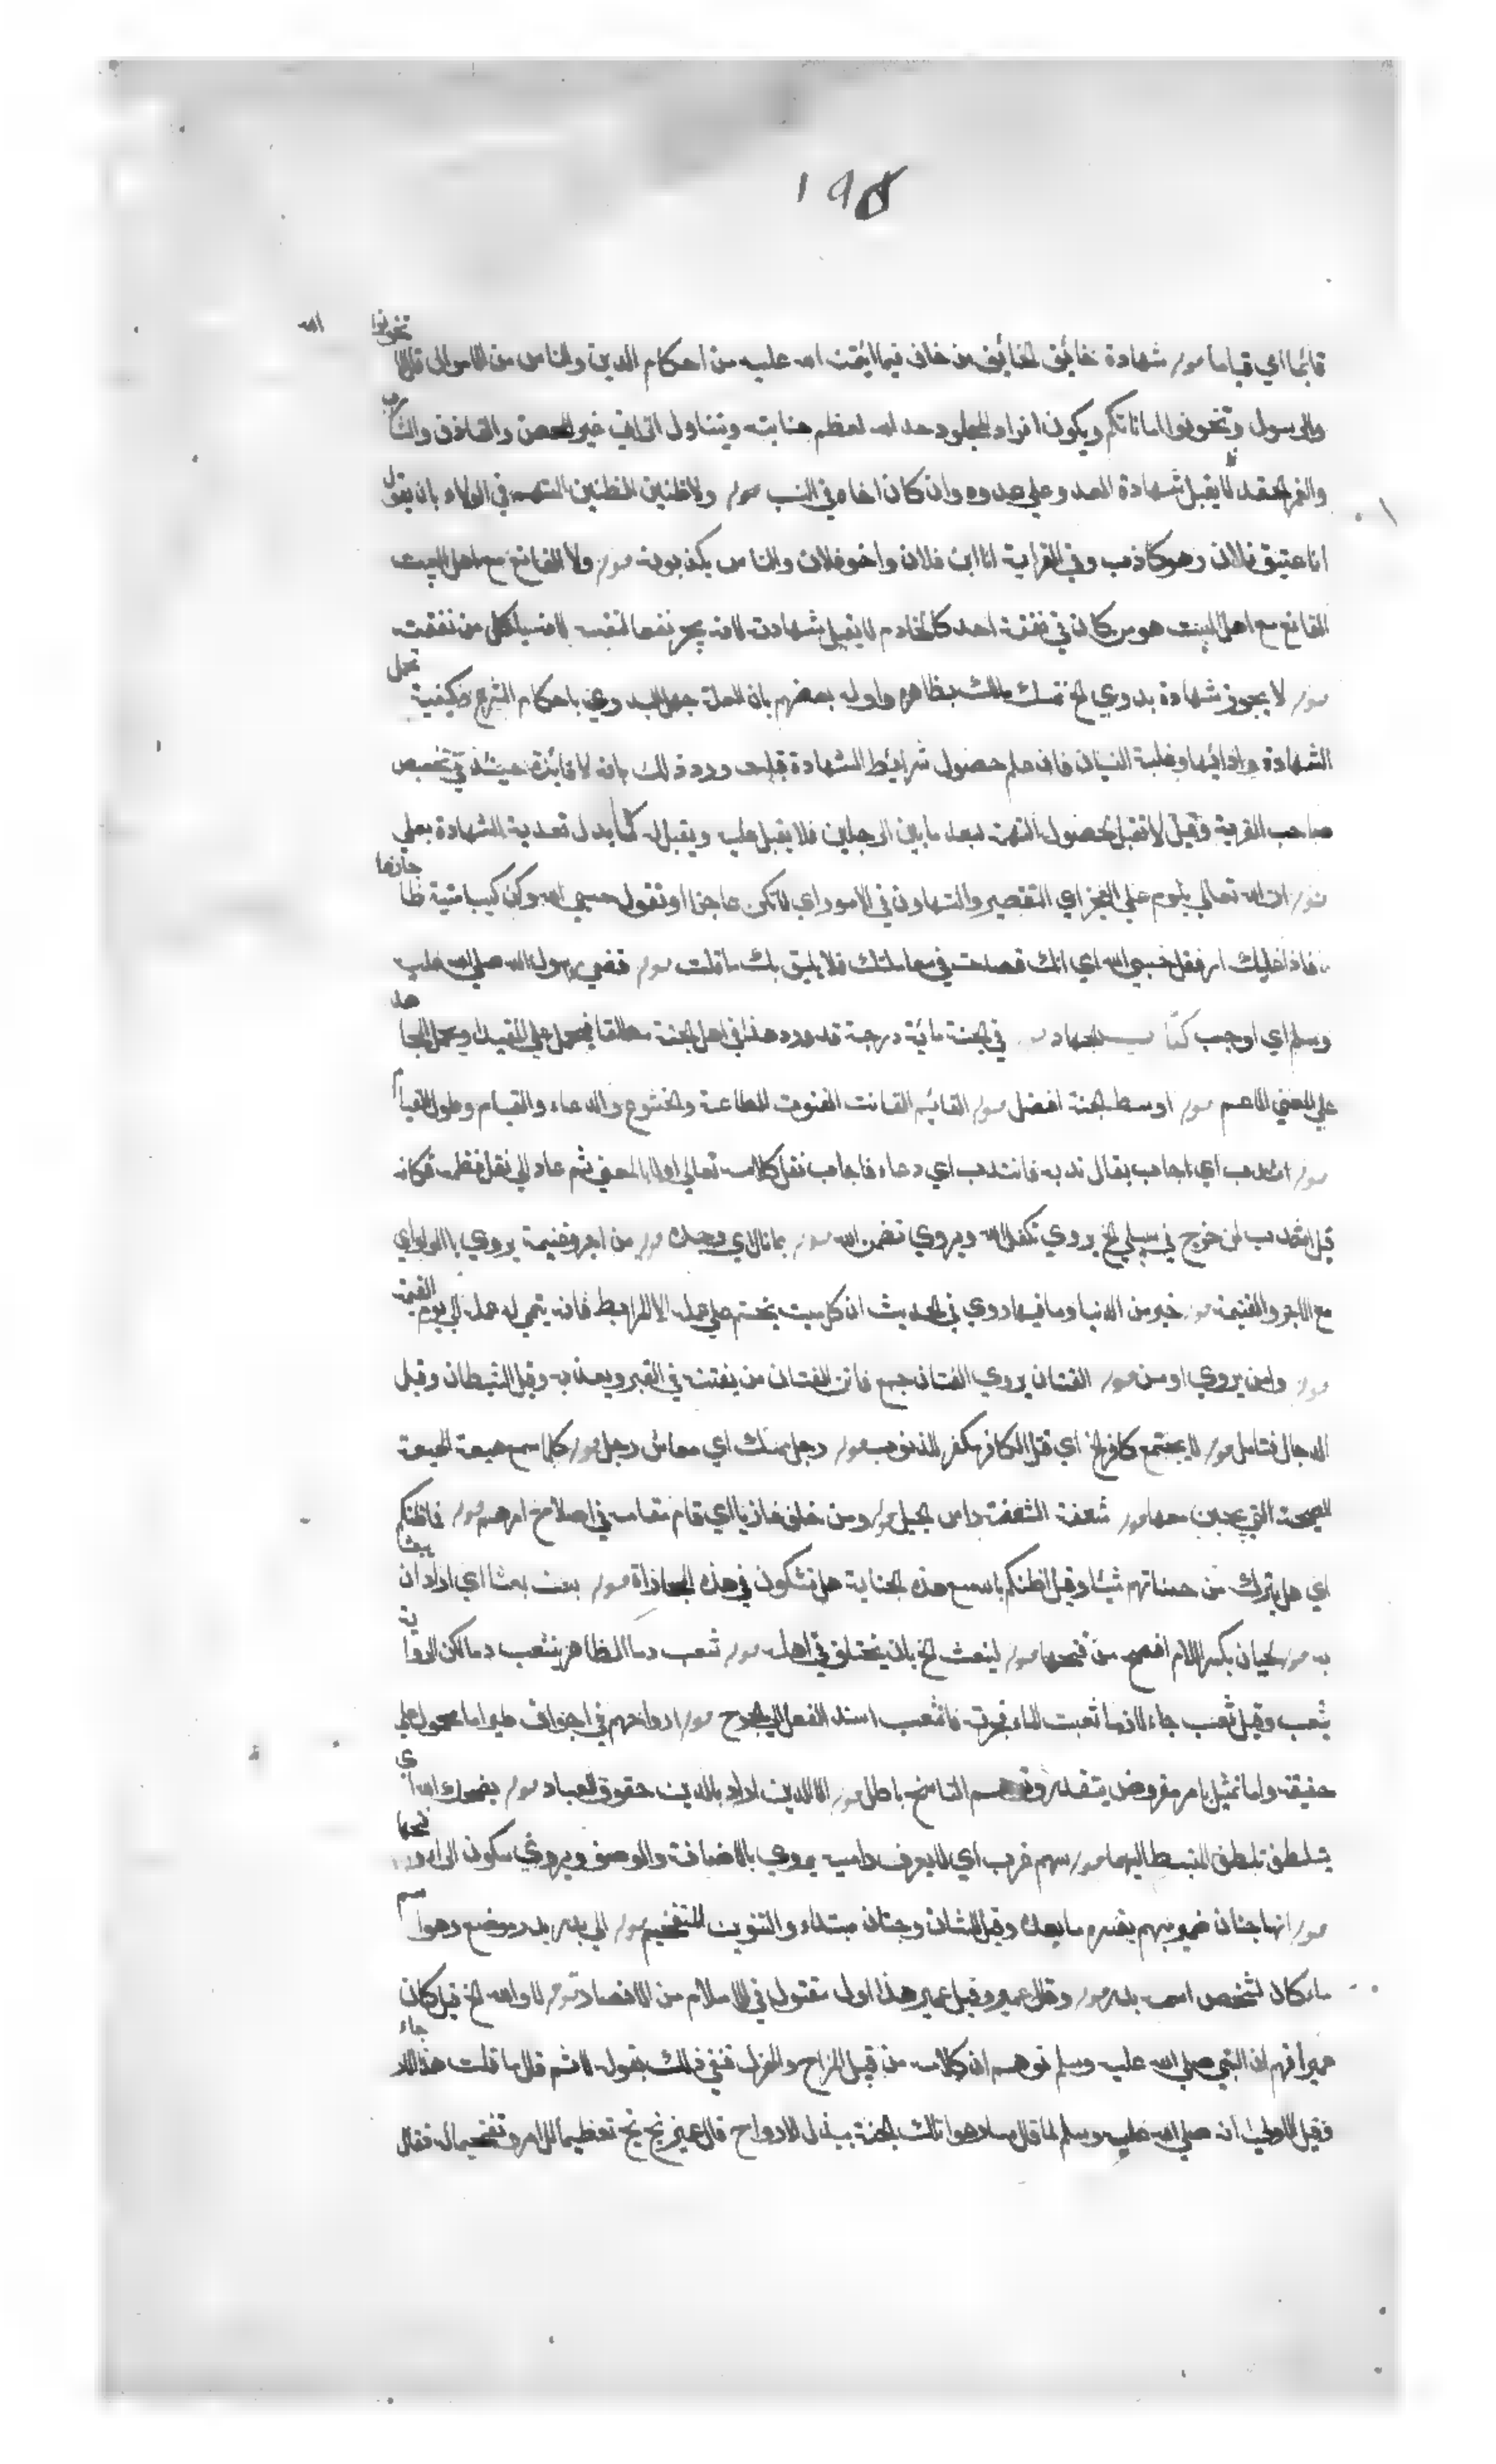 ١٩٥
قائما اي قياما قوله شهادة خائن الخائن من خان فيما ائتمنه الله عليه من احكام الدين والناس من الناس الى قال لا تخونوا الله
والرسول وتخونوا اماناتكم ويكون افراد المجلود حد لله لعظم جنايته ويتناول الزاني غير المحصن والقاذف والشارب
والغمر الحقد لا يقبل شهادة العدو على عدوه وان كان اخاه في النسب قوله ولا ظنين الظنين المتهم في الولاء بان يقول
انا عتيق فلان وهو كاذب وفي القرابة انا ابن فلان واخو فلان والناس يكذبونه قوله ولا القانع مع اهل البيت
القانع مع اهل البيت هو من كان في نفقة احد كالخادم لا يقبل شهادته لانه يجر نفعا لنفسه من نفقته
قوله لا يجوز شهادة بدوي الخ تمسك مالك بظاهره واوله بعضهم بان العلة جهل البدوي باحكام الشرع وكيفية تحمل
الشهادة وادائها وغلبة النسيان فان علم حصول شرائط الشهادة قبلت ورد ذلك بانه لا فائدة حينئذ في تخصيص
صاحب القرية وقيل لا تقبل لحصول التهمة لبعد ما بين الرجلين فلا يقبل عليه ويقبل له كما يدل تعدية الشهادة بعلى
قوله ان الله تعالى يلوم على العجز اي التقصير والتهاون في الامور اي لا تكن عاجزا وتقول حسبي الله وكن كيسا
فاذا غلبك امر فقل حسبي الله اي انك قصرت في معاملتك فلا يليق بك ما قلت قوله قضى رسول الله صلى الله عليه
وسلم اي اوجب كتاب الجهاد قوله في الجنة مائة درجة قد ورد هذا في اهل الجنة مطلقا فيحمل على المقيد او يحمل الجهاد
على المعنى الاعم قوله اوسط الجنة افضل قوله القائم القانت القنوت الطاعة والخشوع والدعاء والقيام وطول القيام
قوله انتدب اي اجاب يقال ندبه فانتدب اي دعاه فاجاب نقل كلامه تعالى اولا بالمعنى ثم عاد الى نقل لفظه فكانه
قيل انتدب لمن خرج في سبيلي الخ يروي تكفل الله ويروي تضمن الله قوله بما نال اي وجده قوله من اجر وغنيمة يروي بالواو اي
مع الاجر والغنيمة قوله خير من الدنيا وما فيها روي في الحديث ان كل ميت يختم على عمله الا المرابط فانه ينمي له عمله الى يوم القيمة
قوله وامن يروي اومن قوله الفتان يروي الفتان جمع فاتن الفتان من يفتنه في القبر ويعذبه وقيل الشيطان وقيل
الدجال فتامل قوله لا يجتمع كافر الخ اي قتل الكافر مكفر للذنوب قوله رجل ممسك اي معاش رجل قوله كلما سمع هيعة الهيعة
الصيحة التي يجبن معها قوله شعفة الشعفة راس الجبل قوله ومن خلف غازيا اي قام مقامه في اصلاح امرهم قوله فما ظنكم
اي هل يترك من حسناتهم شيئا وقيل ما ظنكم بالله مع هذه الجناية هل تشكون في هذه المجازاة قوله بعث بعثا اي اراد ان يبعث
به قوله لحيان بكسر اللام افصح من فتحها قوله لينبعث الخ بان يتخلف في اهله قوله تثعب دما الظاهر يثعب دما لكن الرواية
يثعب وقيل تثعب جاء لازما ثعبت الماء فجرته فانثعب اسند الفعل الى الجرح قوله ارواحهم في اجواف طير اما محمول على
حقيقة واما تمثيل بامر مفروض وتوهم التناسخ باطل قوله الا الدين اراد بالدين حقوق العباد قوله يضحك الله اي
يتلطف تلطف المنبسط اليهما قوله سهم غرب اي لا يعرف راميه يروي بالاضافة والوصف ويروي سكون الراء وفتحها
قوله انها جنان ضمير مبهم يفسره ما بعده وقيل للشان وجنان مبتداء والتنوين للتفخيم قوله الى بدر بدر موضع وهو اسم
ماء كان لشخص اسمه بدر قوله وقال عمير وقيل عمير هذا اول مقتول في الاسلام من الانصار قوله لا والله الخ قيل كان
عمير افهم ان النبي صلى الله عليه وسلم توهم ان كلامه من قبيل المزاح والهزل فنفي ذلك بقوله لا ثم قال ما قلت هذا الا رجاء
وقيل الاولى انه صلى الله عليه وسلم لما قال ما قال الجنة ببذل الارواح قال عمير بخ بخ تعظيما للامر وتفخيما له فقال